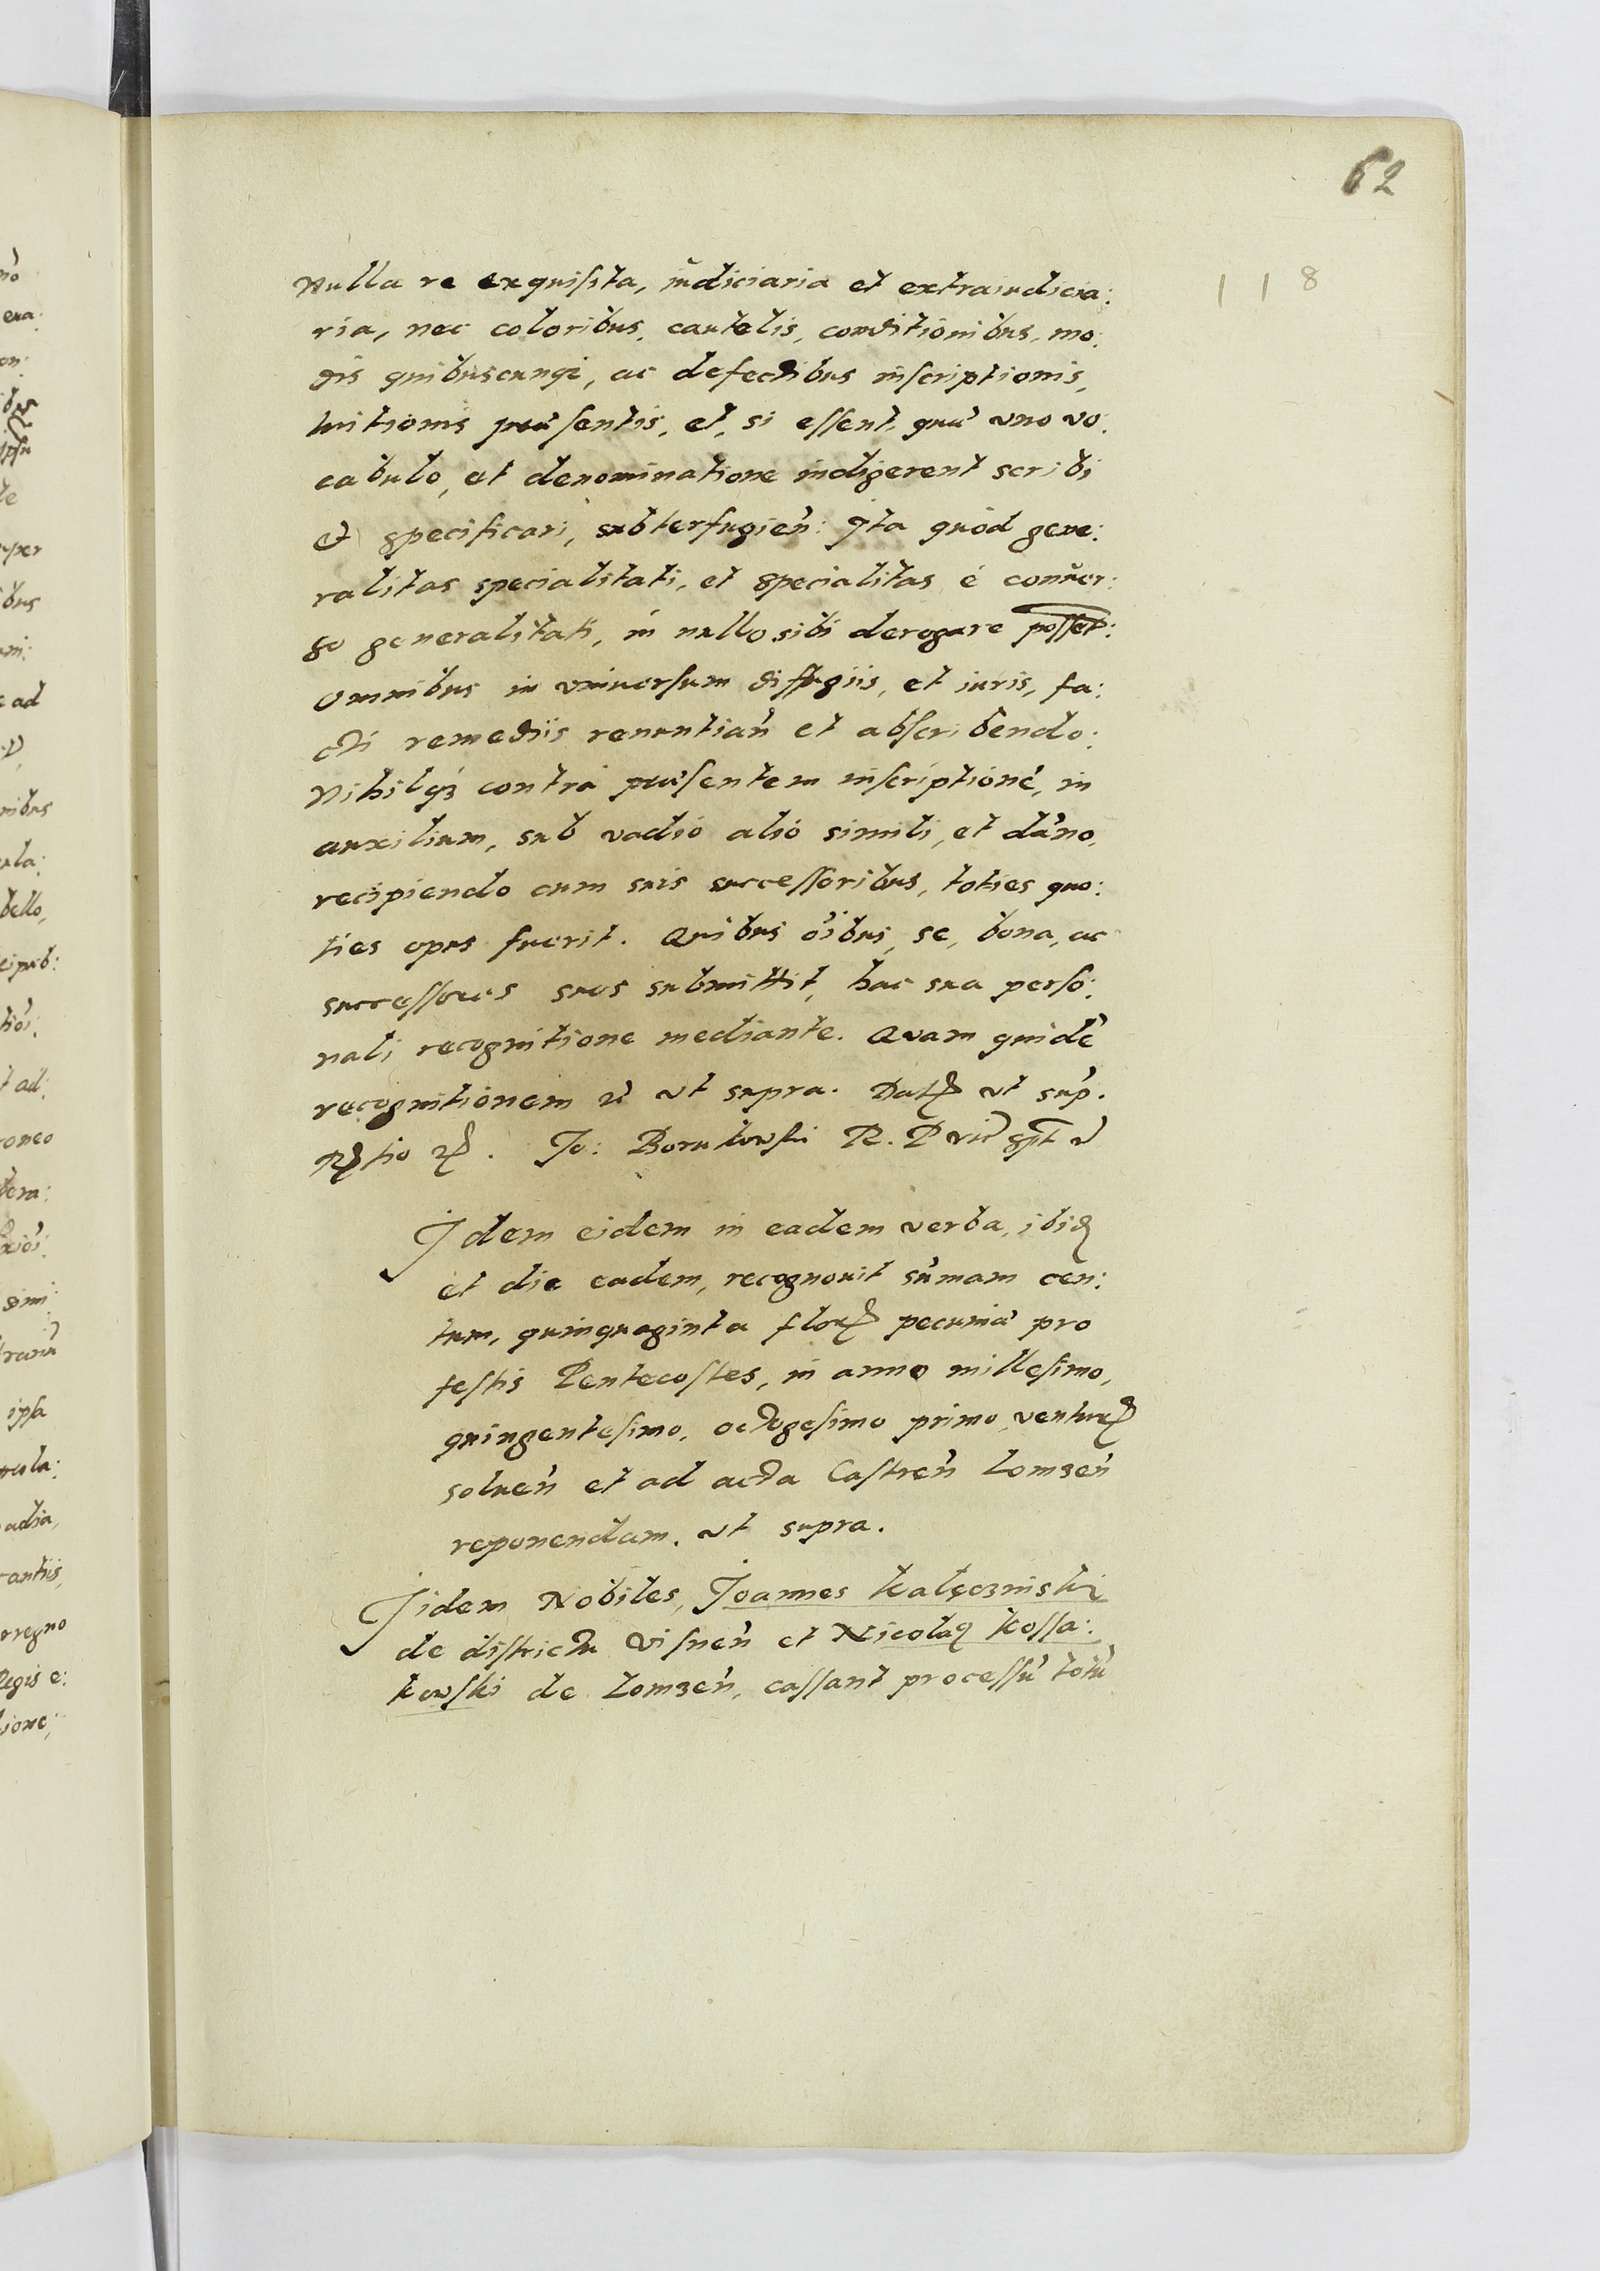 62
118
nulla re exquisita, iudiciaria et extraiudicia:
ria, nec coloribus, cautelis, conditionibus, mo:
dis quibuscunqȝ, ac defectibus inscriptionis,
tuitionis præsentis, et, si essent, quæ uno vo:
cabulo, et denominatione indigerent scribi
et specificari, subterfugieñ: Ita quòd gene:
ralitas specialitati, et specialitas è conuer:
so generalitati, in nullo sibi derogare posset:
omnibus in vniuersum diffugiis, et iuris, fa:
cti remediis renuntiañ et abscribendo:
Nihilqȝ contrà præsentem inscriptionē, in
auxilium, sub vadio alio simili, et dāno,
recipiendo cum suis successoribus, toties quo:
ties opus fuerit. Quibus oībus, se, bona, ac
successores suos submittit, hac sua perso:
nali recognitione mediante. Quam quidē
recognitionem ut supra. ut sup.
Jo: Borukowski R. P.
Idem eidem in eadem verba, ibid
et die eadem, recognouit sūmam cen:
tum, quinquaginta flor pecuniæ pro
festis Pentecostes, in anno millesimo,
quingentesimo, octogesimo primo, ventur
solueñ et ad acta Castreñ Lomzeñ
reponendam. ut supra.
Iidem Nobiles, Joannes Kalęczinski
de districtu Visneñ et Nicola9 Kossa:
kowski de Lomzeñ, cassant processū totū